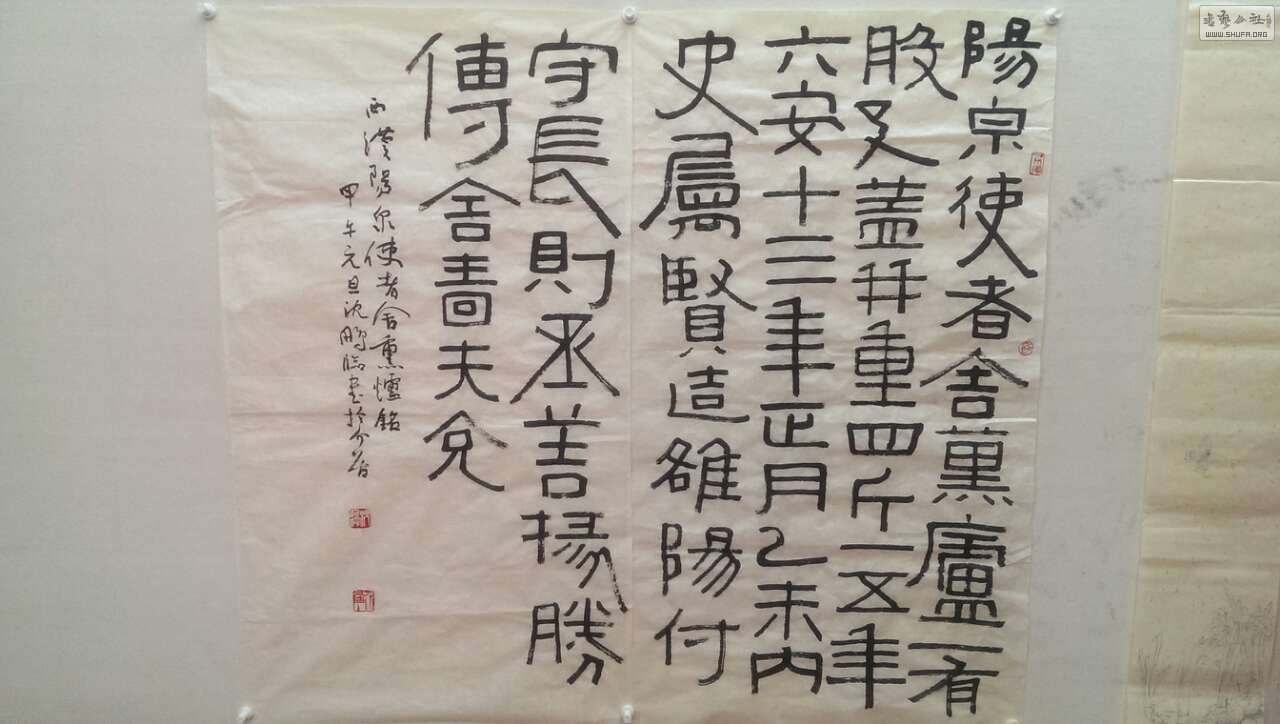 陽泉使者舍薰廬一有
般及蓋并重四斤一五年
六安十三年正月乙未内
史屬賢造雒陽付
守長則丞善掾勝
傳舍嗇夫兌
西漢陽泉使者舍熏爐銘
甲午元旦沈鵬臨書於介居
書藝公社
WWW.SHUFA.ORG